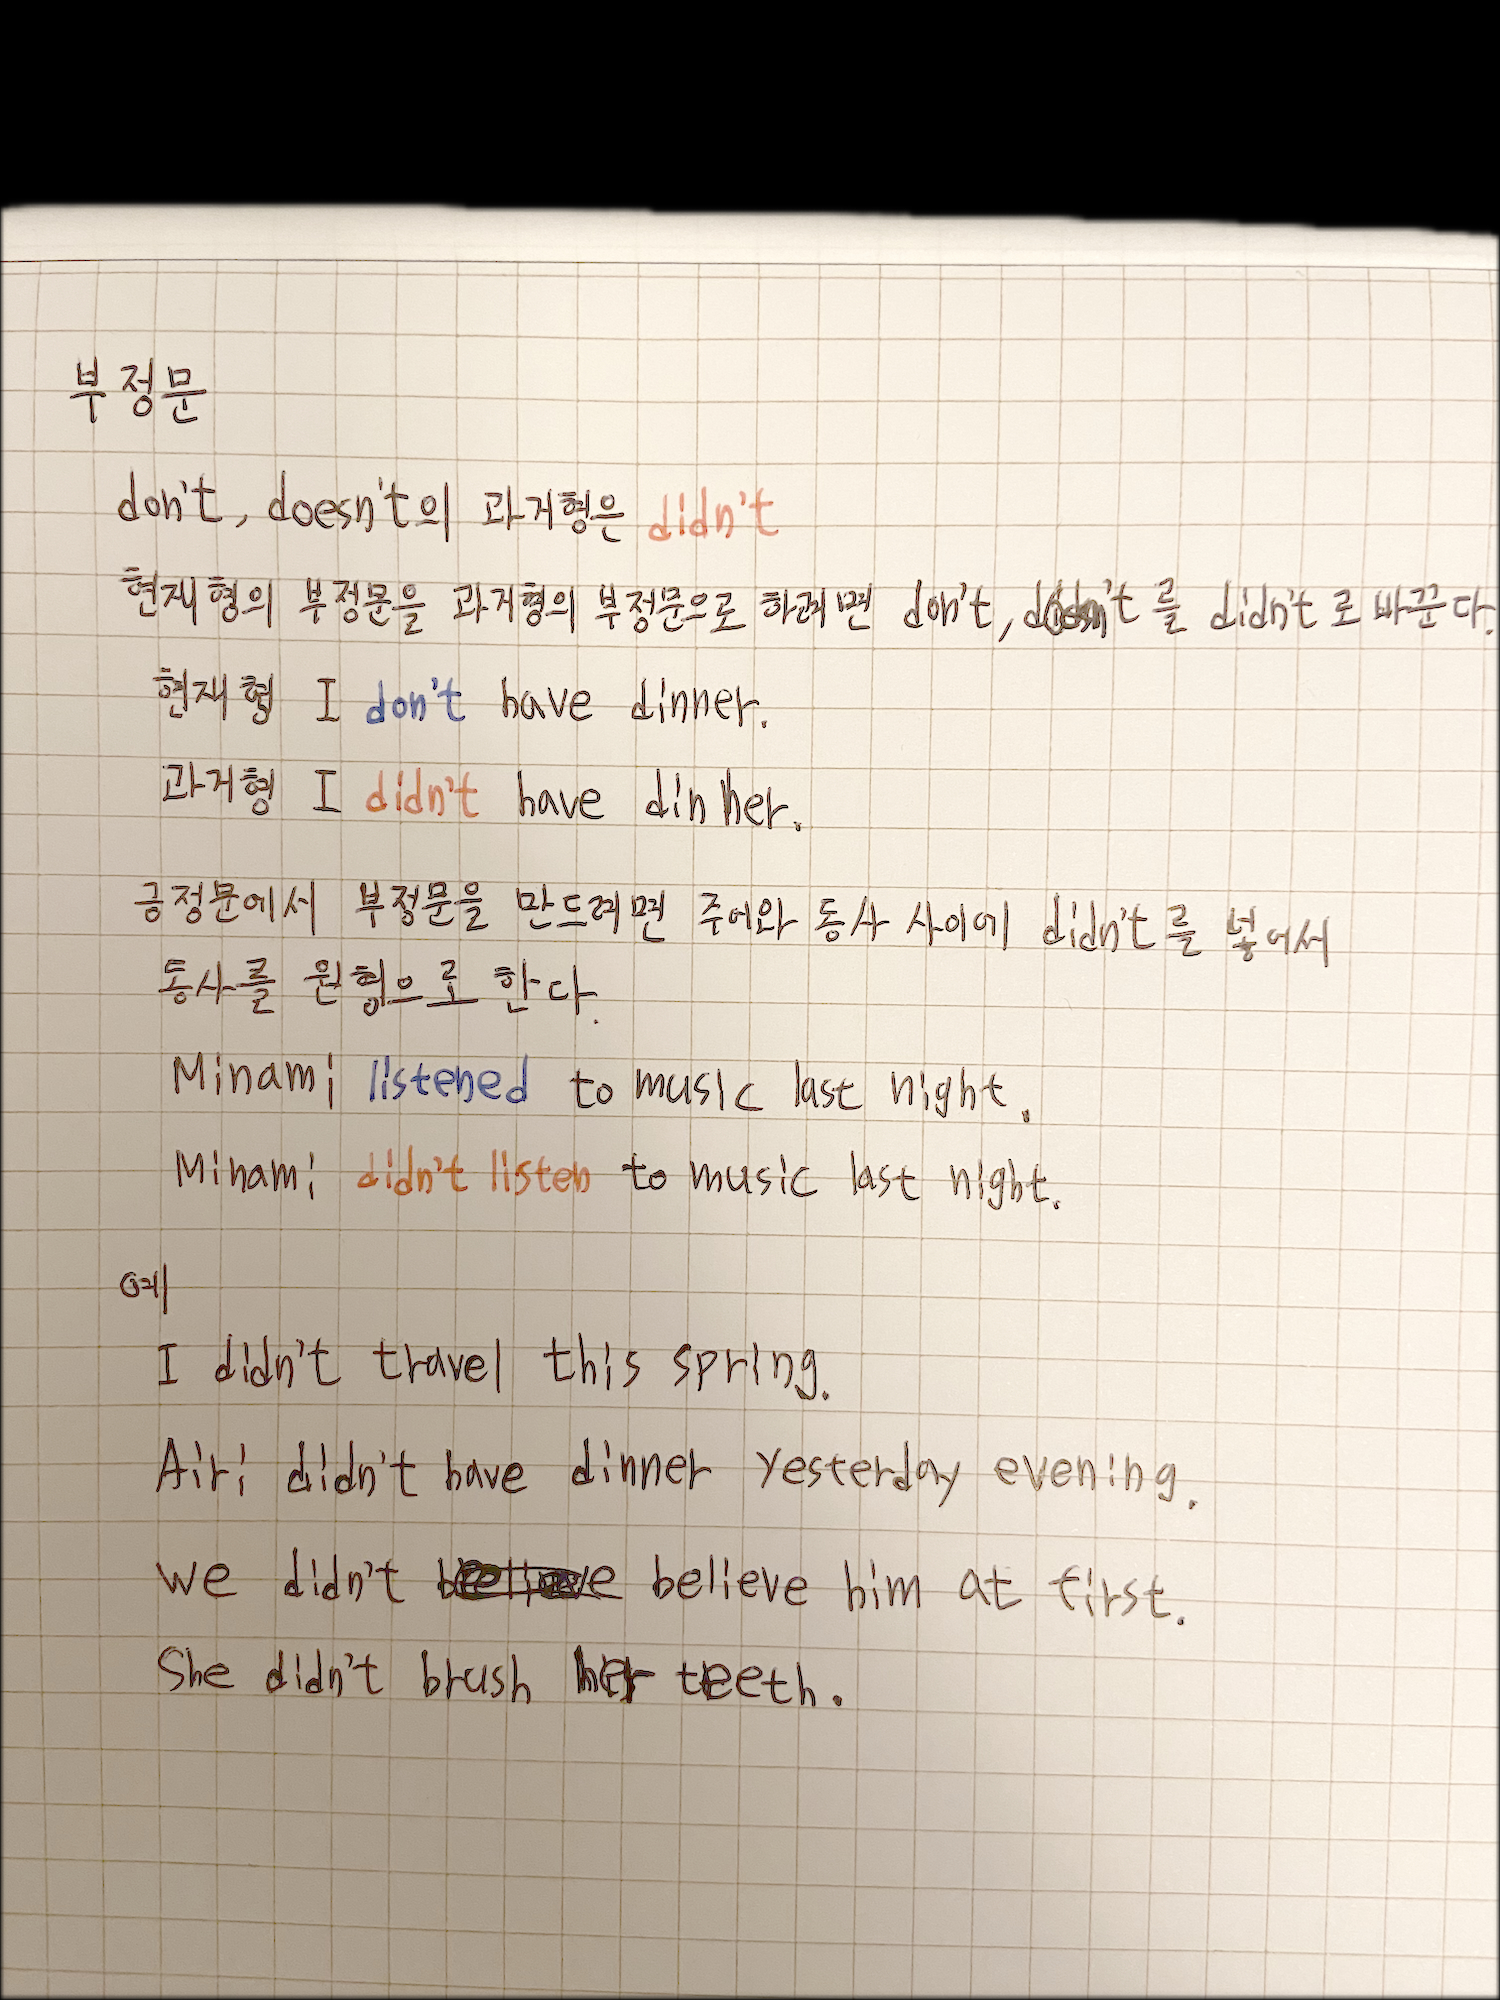 부정문
don't, doesn't의 과거형은 didn't
현재형의 부정문을 과거형의 부정문으로 하려면 don't, doesn't를 didn't로 바꾼다.
현재형 I don't have dinner.
과거형 I didn't have dinner.
긍정문에서 부정문을 만드려면 주어와 동사 사이에 didn't를 넣어서
동사를 원형으로 한다.
Minami listened to music last night.
Minami didn't listen to music last night.
예
I didn't travel this spring.
Airi didn't have dinner yesterday evening.
We didn't believe him at first.
She didn't brush her teeth.